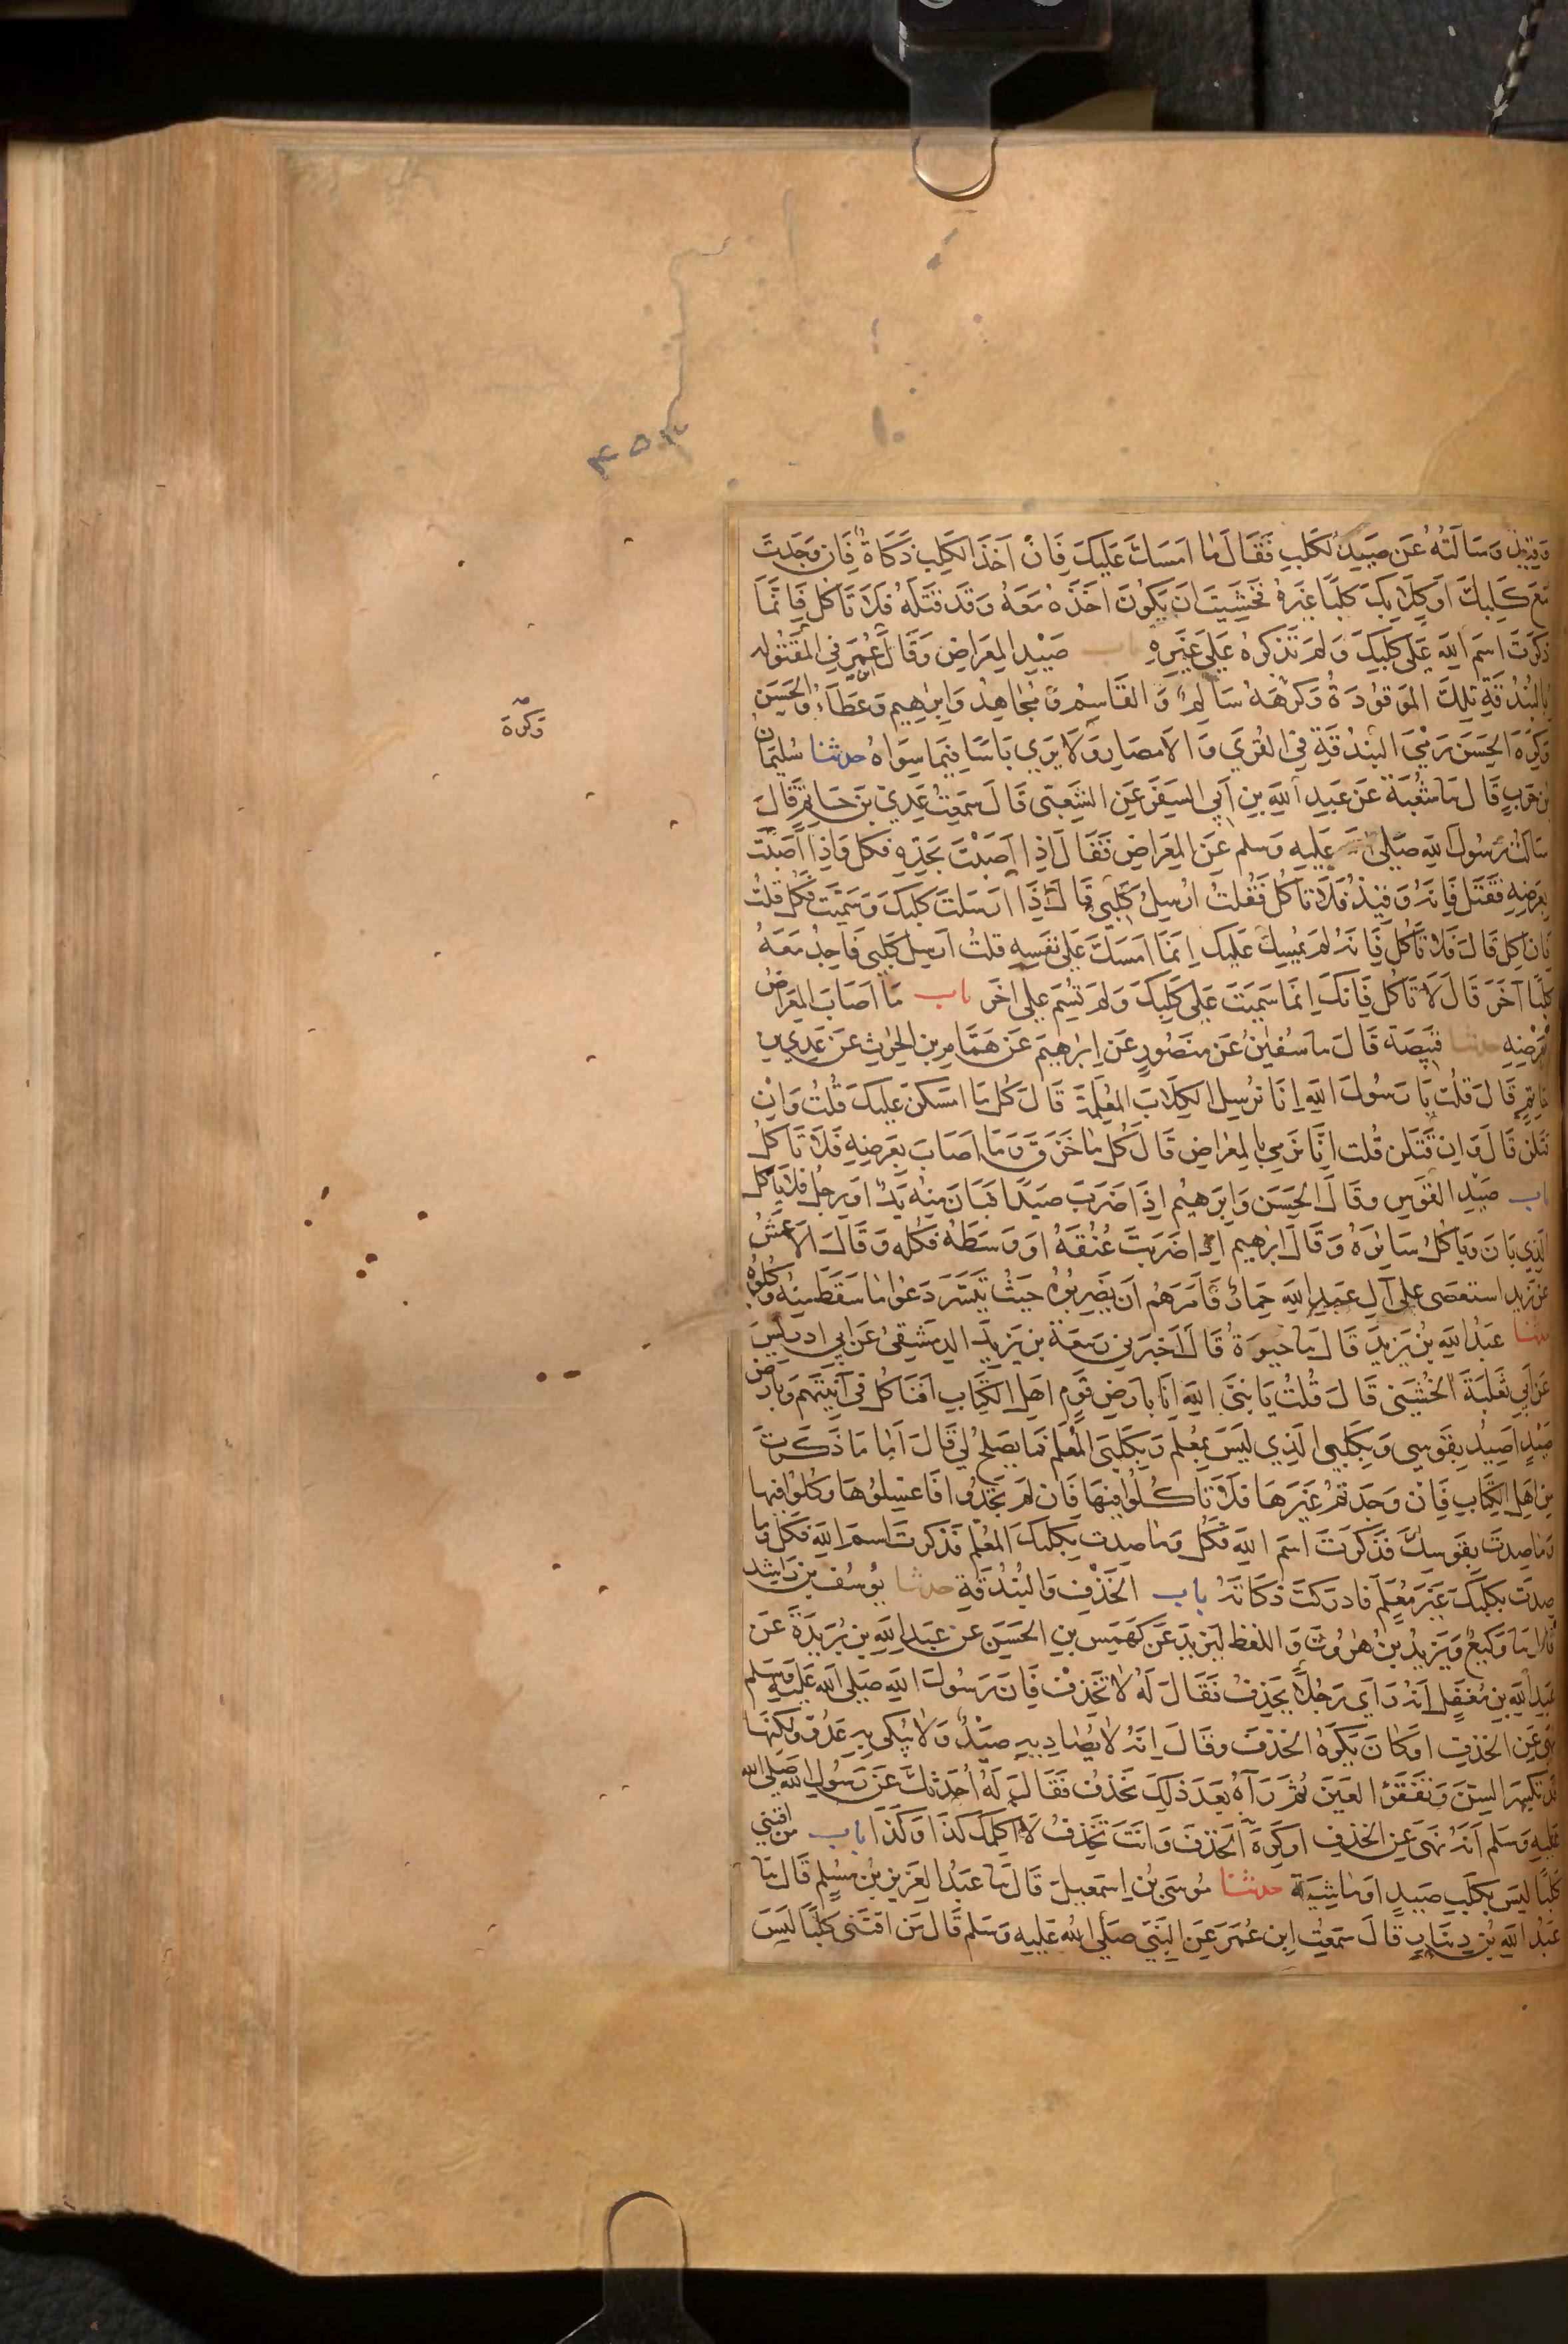 ٤٥٣
وقيذ وسالته عن صيد الكلب فقال ما امسك عليك فان اخذ الكلب ذكاة فان وجدت
مع كلبك او كلابك كلبا غيره فخشيت ان يكون اخذه معه وقد قتله فلا تاكل فانما
ذكرت اسم الله على كلبك ولم تذكره على غيره باب صيد المعراض وقال ابن عمر في المقتوله
بالبندقة تلك الموقوذة وكرهه سالم والقاسم ومجاهد وابرهيم وعطاء والحسن
وكره
وكره الحسن رمي البندقة في القرى والامصار ولا يرى باسا فيما سواه حدثنا سليمان
بن حرب قال نا شعبة عن عبد الله بن ابي السفر عن الشعبي قال سمعت عدي بن حاتم قال
سالت رسول الله صلى الله عليه وسلم عن المعراض فقال اذا اصبت بحده فكل واذا اصبت
بعرضه فقتل فانه وقيذ فلا تاكل فقلت ارسل كلبي قال اذا ارسلت كلبك وسميت فكل قلت
فان اكل قال فلا تاكل فانه لم يمسك عليك انما امسك على نفسه قلت ارسل كلبي فاجد معه
كلبا اخر قال لا تاكل فانك انما سميت على كلبك ولم تسم على اخر باب ما اصاب المعراض
بعرضه حدثنا قبيصة قال نا سفين عن منصور عن ابرهيم عن همام بن الحرث عن عدي بن
حاتم قال قلت يا رسول الله انا نرسل الكلاب المعلمة قال كل ما امسكن عليك قلت وان
قتلن قال وان قتلن قلت انا نرمي بالمعراض قال كل ما خزق وما اصاب بعرضه فلا تاكل
باب صيد القوس وقال الحسن وابرهيم اذا ضرب صيدا فبان منه يد او رجل فلا ياكل
الذي بان وياكل سائره وقال ابرهيم اذا ضربت عنقه او وسطه فكله وقال الاعمش
عن زيد استعصى على آل عبد الله حمار فامرهم ان يضربوه حيث تيسر دعوا ما سقط منه وكلوه
حدثنا عبد الله بن يزيد قال نا حيوة قال اخبرني ربيعة بن يزيد الدمشقي عن ابي ادريس
عن ابي ثعلبة الخشني قال قلت يا نبي الله انا بارض قوم اهل الكتاب افناكل في آنيتهم وبارض
صيد اصيد بقوسي وبكلبي الذي ليس بمعلم وبكلبي المعلم فما يصلح لي قال اما ما ذكرت
من اهل الكتاب فان وجدتم غيرها فلا تاكلوا فيها فان لم تجدوا فاغسلوها وكلوا فيها
وما صدت بقوسك فذكرت اسم الله فكل وما صدت بكلبك المعلم فذكرت اسم الله فكل وما
صدت بكلبك غير معلم فادركت ذكاته باب الخذف والبندقة حدثنا يوسف بن راشد
قال نا وكيع ويزيد بن هرون واللفظ ليزيد عن كهمس بن الحسن عن عبد الله بن بريدة عن
عبد الله بن مغفل انه راى رجلا يخذف فقال له لا تخذف فان رسول الله صلى الله عليه وسلم
نهى عن الخذف او كان يكره الخذف وقال انه لا يصاد به صيد ولا ينكى به عدو ولكنها
قد تكسر السن وتفقؤ العين ثم رآه بعد ذلك يخذف فقال له احدثك عن رسول الله صلى الله
عليه وسلم انه نهى عن الخذف او كره الخذف وانت تخذف لا اكلمك كذا وكذا باب من اقتنى
كلبا ليس بكلب صيد او ماشية حدثنا موسى بن اسمعيل قال نا عبد العزيز بن مسلم قال نا
عبد الله بن دينار قال سمعت ابن عمر عن النبي صلى الله عليه وسلم قال من اقتنى كلبا ليس